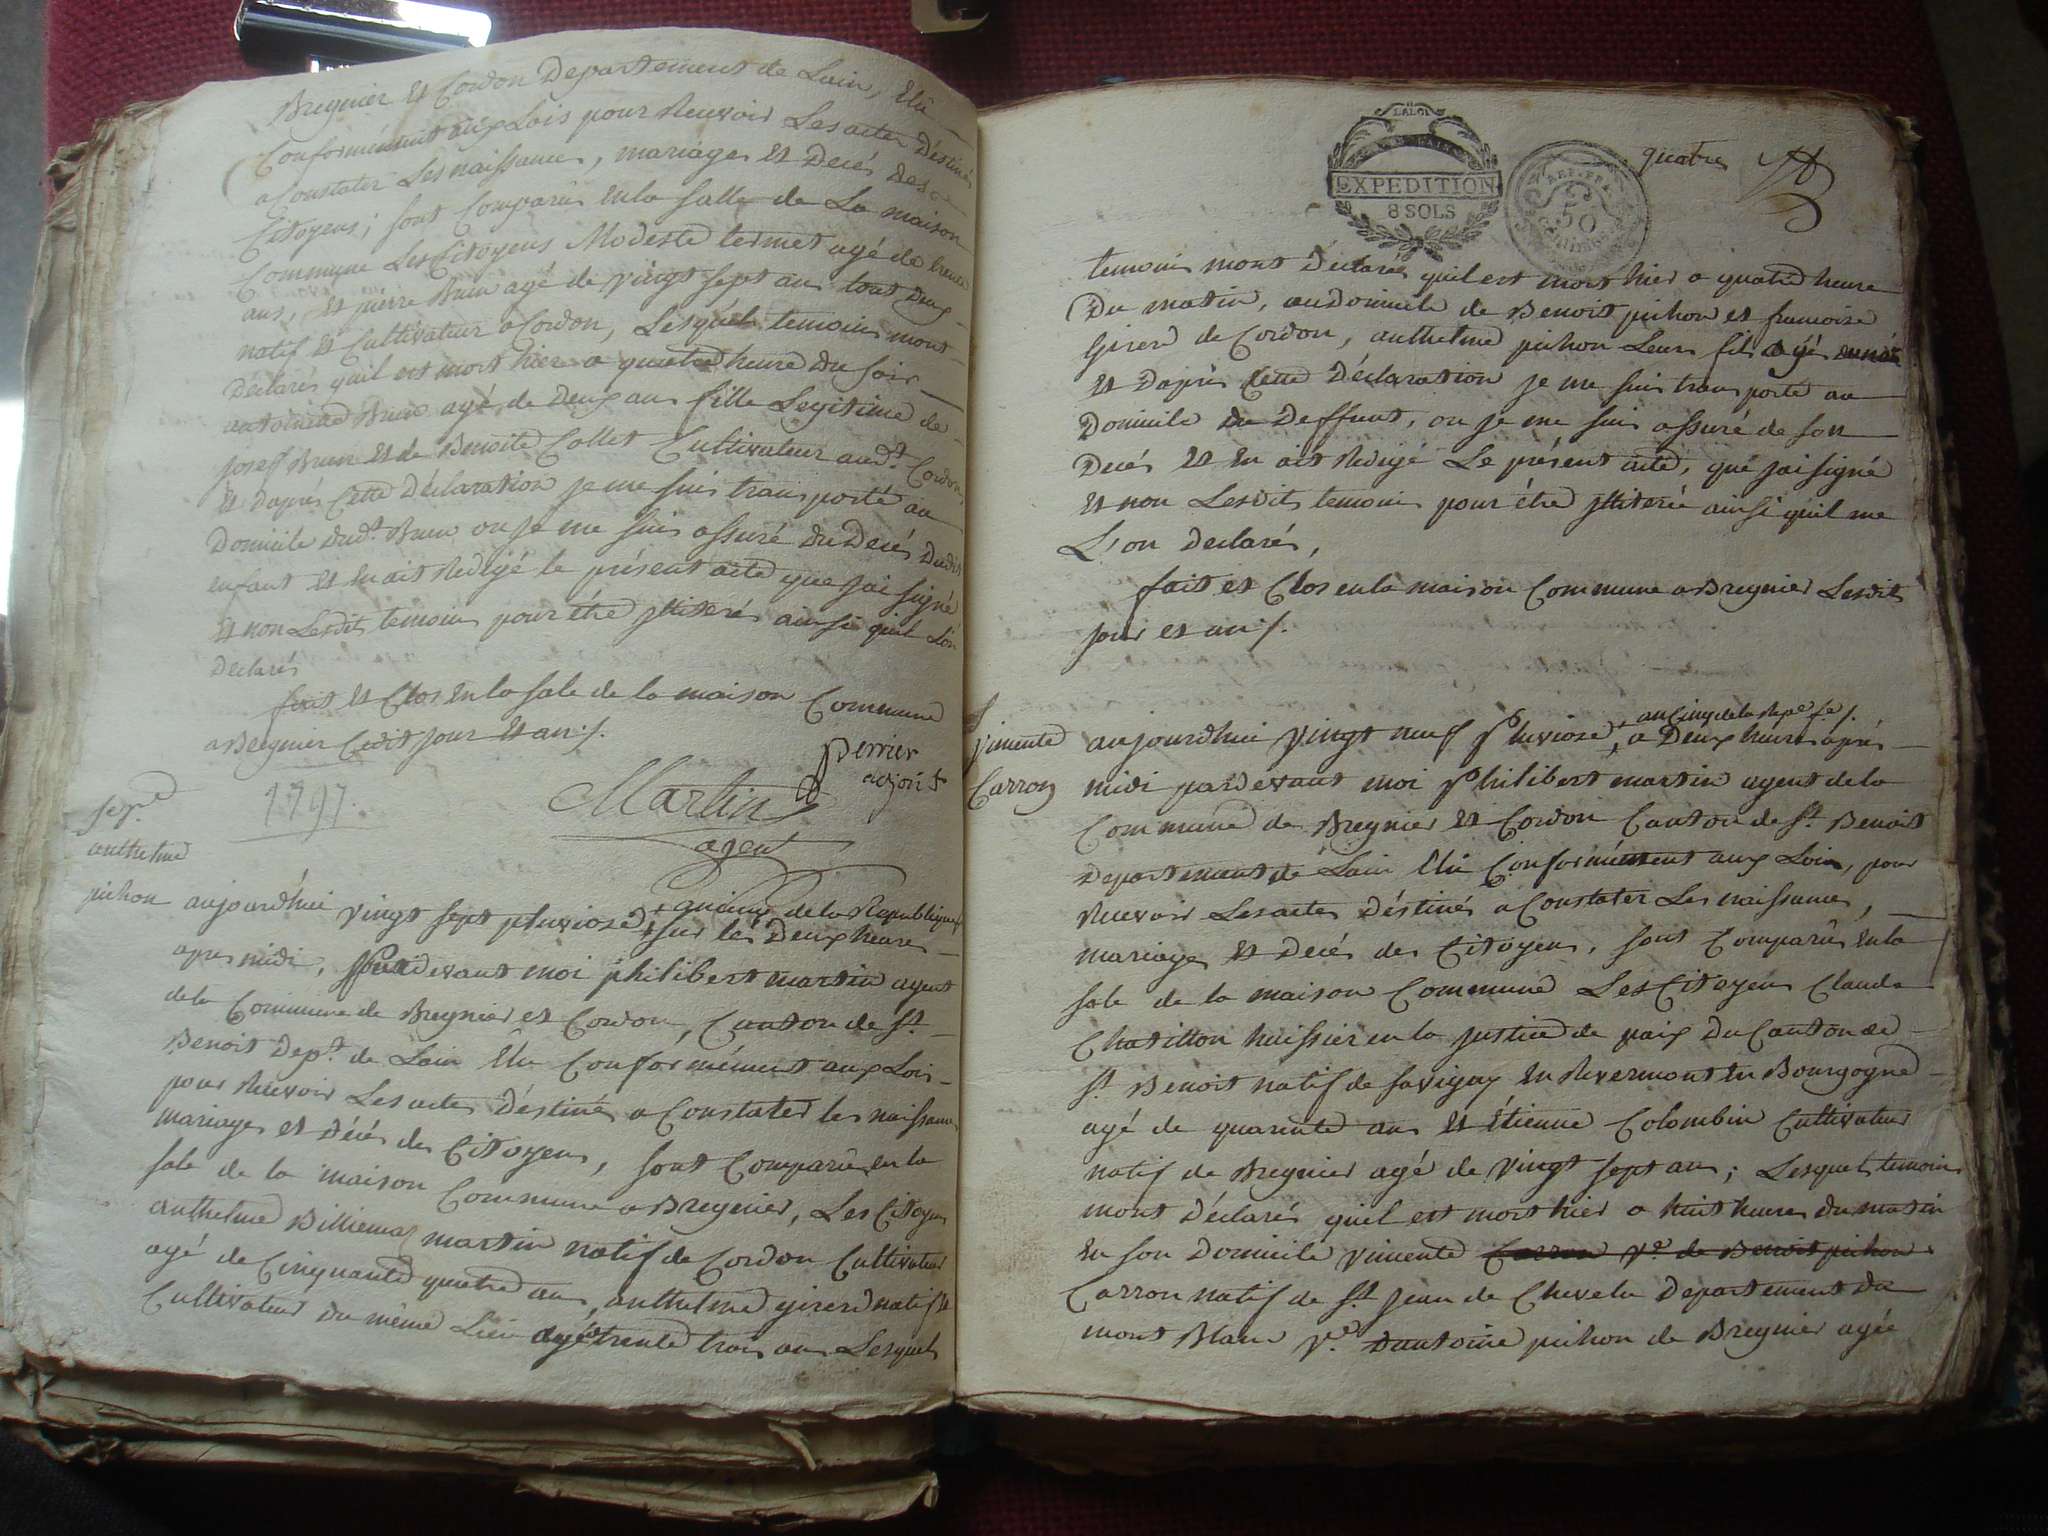 Bregnier et Cordon Departement de Lain, Elû
Conformément aux Lois pour Recevoir Les actes Déstinés
a Constater Les naissances, mariages et Decés des
Citoyens; sont Comparûs en la salle de La maison
Commune Les Citoyens Modeste termet agé de trente
ans, et pierre Brun agé de vingt sept ans tout deux
natif et Cultivateur a Cordon, Lesquels temoins mont
Déclarés quil est mort hier a quatre heure du soir
antoinette Brun agé de Deux ans fille Legitime de
Joseff Brun et de Benoite Collet Cultivateur aud.t Cordon,
et daprés Cette Déclaration je me suis transporté au
Domicile dud.t Brun ou Je me suis assuré du Decés Dudit
enfant et en ait Redigé le présent acte que jai signé
et non Lesdits temoins pour être illiterés ainsi quil Lon
Declarés
fait et Clos en la sale de la maison Commune
a Bregnier Cedit jour et an ./.
Perrier
adjoint
1797.
Martin
agent
sep.re
anthelme
pichon
aujourdhui vingt sept pluviose, + an cinq de la Republique
+ sur les Deux heures
apres midi, Pardevant moi philibert martin agent
de la Commune de Bregnier et Cordon, Canton de St.
Benoit Dep.t de Lain Elu Conformément aux Lois
pour Recevoir Les actes Déstinés a Constater les naissances
mariages et Décés des Citoyens, sont Comparûs en la
sale de la maison Commune a Bregnier, Les Citoyens
anthelme Billiemaz martin natif de Cordon Cultivateur
agé de Cinquante quatre ans, anthelme girerd natif et
Cultivateur du même Lieu agé trente trois ans Lesquels
LA LOI
EXPEDITION
8 SOLS
REP. FRA.
50
quatre
temoins mont Déclarés quil est mort hier a quatre heure
Du matin, au Domicile de Benoit pichon et francoise
Girerd de Cordon, anthelme pichon Leurs fils agé
et Daprés Cette Déclaration je me suis transporté au
Domicile du Deffunt, ou je me suis assuré de son
Decés et en ait Redigé Le présent acte, que jai signé
et non Lesdits temoins pour être illiteré ainsi quil me
L'on declarés,
fait et Clos en la maison Commune a Bregnier Lesdit
jour et an ./.
Vimente
Carron
aujourdhui vingt neuf Pluviose, an Cinq de la Rep.e f.se ./. a Deux heures aprés
midi pardevant moi Philibert martin agent de la
Commune de Bregnier et Cordon Canton de St. Benoit
Departement de Lain Elu Conformément aux Lois, pour
Recevoir Les actes Déstinés a Constater Les naissances,
mariages et Decés des Citoyens, sont Comparûs en la
sale de la maison Commune Les Citoyens Claude
Chatillon huissier en la justice de paix du Canton de
St. Benoit natif de savigny en Revermont en Bourgogne
agé de quarente ans et Etienne Colombin Cultivateur
natif de Bregnier agé de vingt sept ans; Lesquels temoins
mont Déclarés quil est mort hier a huit heures du matin
en son Domicile vimente Carron v.e de Benoit pichon
Carron natif de St. jean de Chevelu Departement du
mont Blanc v.e dantoine pichon de Bregnier agée